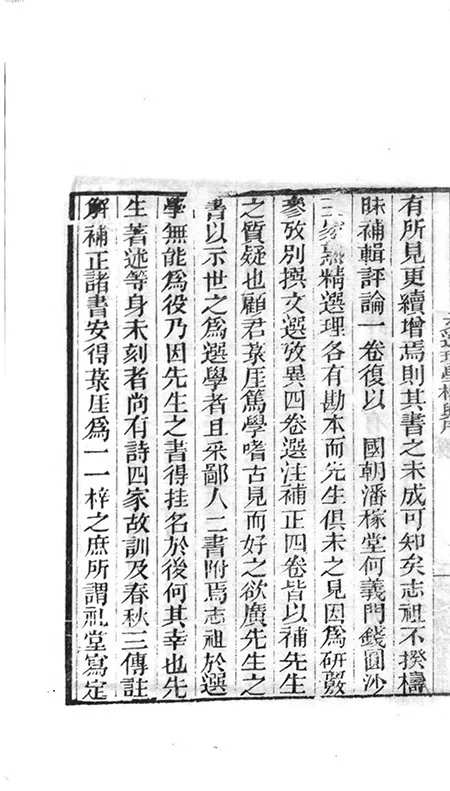 有所見更續增焉則其書之未成可知矣志祖不揆檮
昧補輯評論一卷復以　國朝潘稼堂何義門錢圓沙
三家熟精選理各有勘本而先生俱未之見因爲研覈
參攷別撰文選攷異四卷選注補正四卷皆以補先生
之質疑也顧君菉厓篤學嗜古見而好之欲廣先生之
書以示世之爲選學者且采鄙人二書附焉志祖於選
學無能爲役乃因先生之書得挂名於後何其幸也先
生著述等身未刻者尚有詩四家故訓及春秋三傳註
解補正諸書安得菉厓爲一一梓之庶所謂禮堂寫定